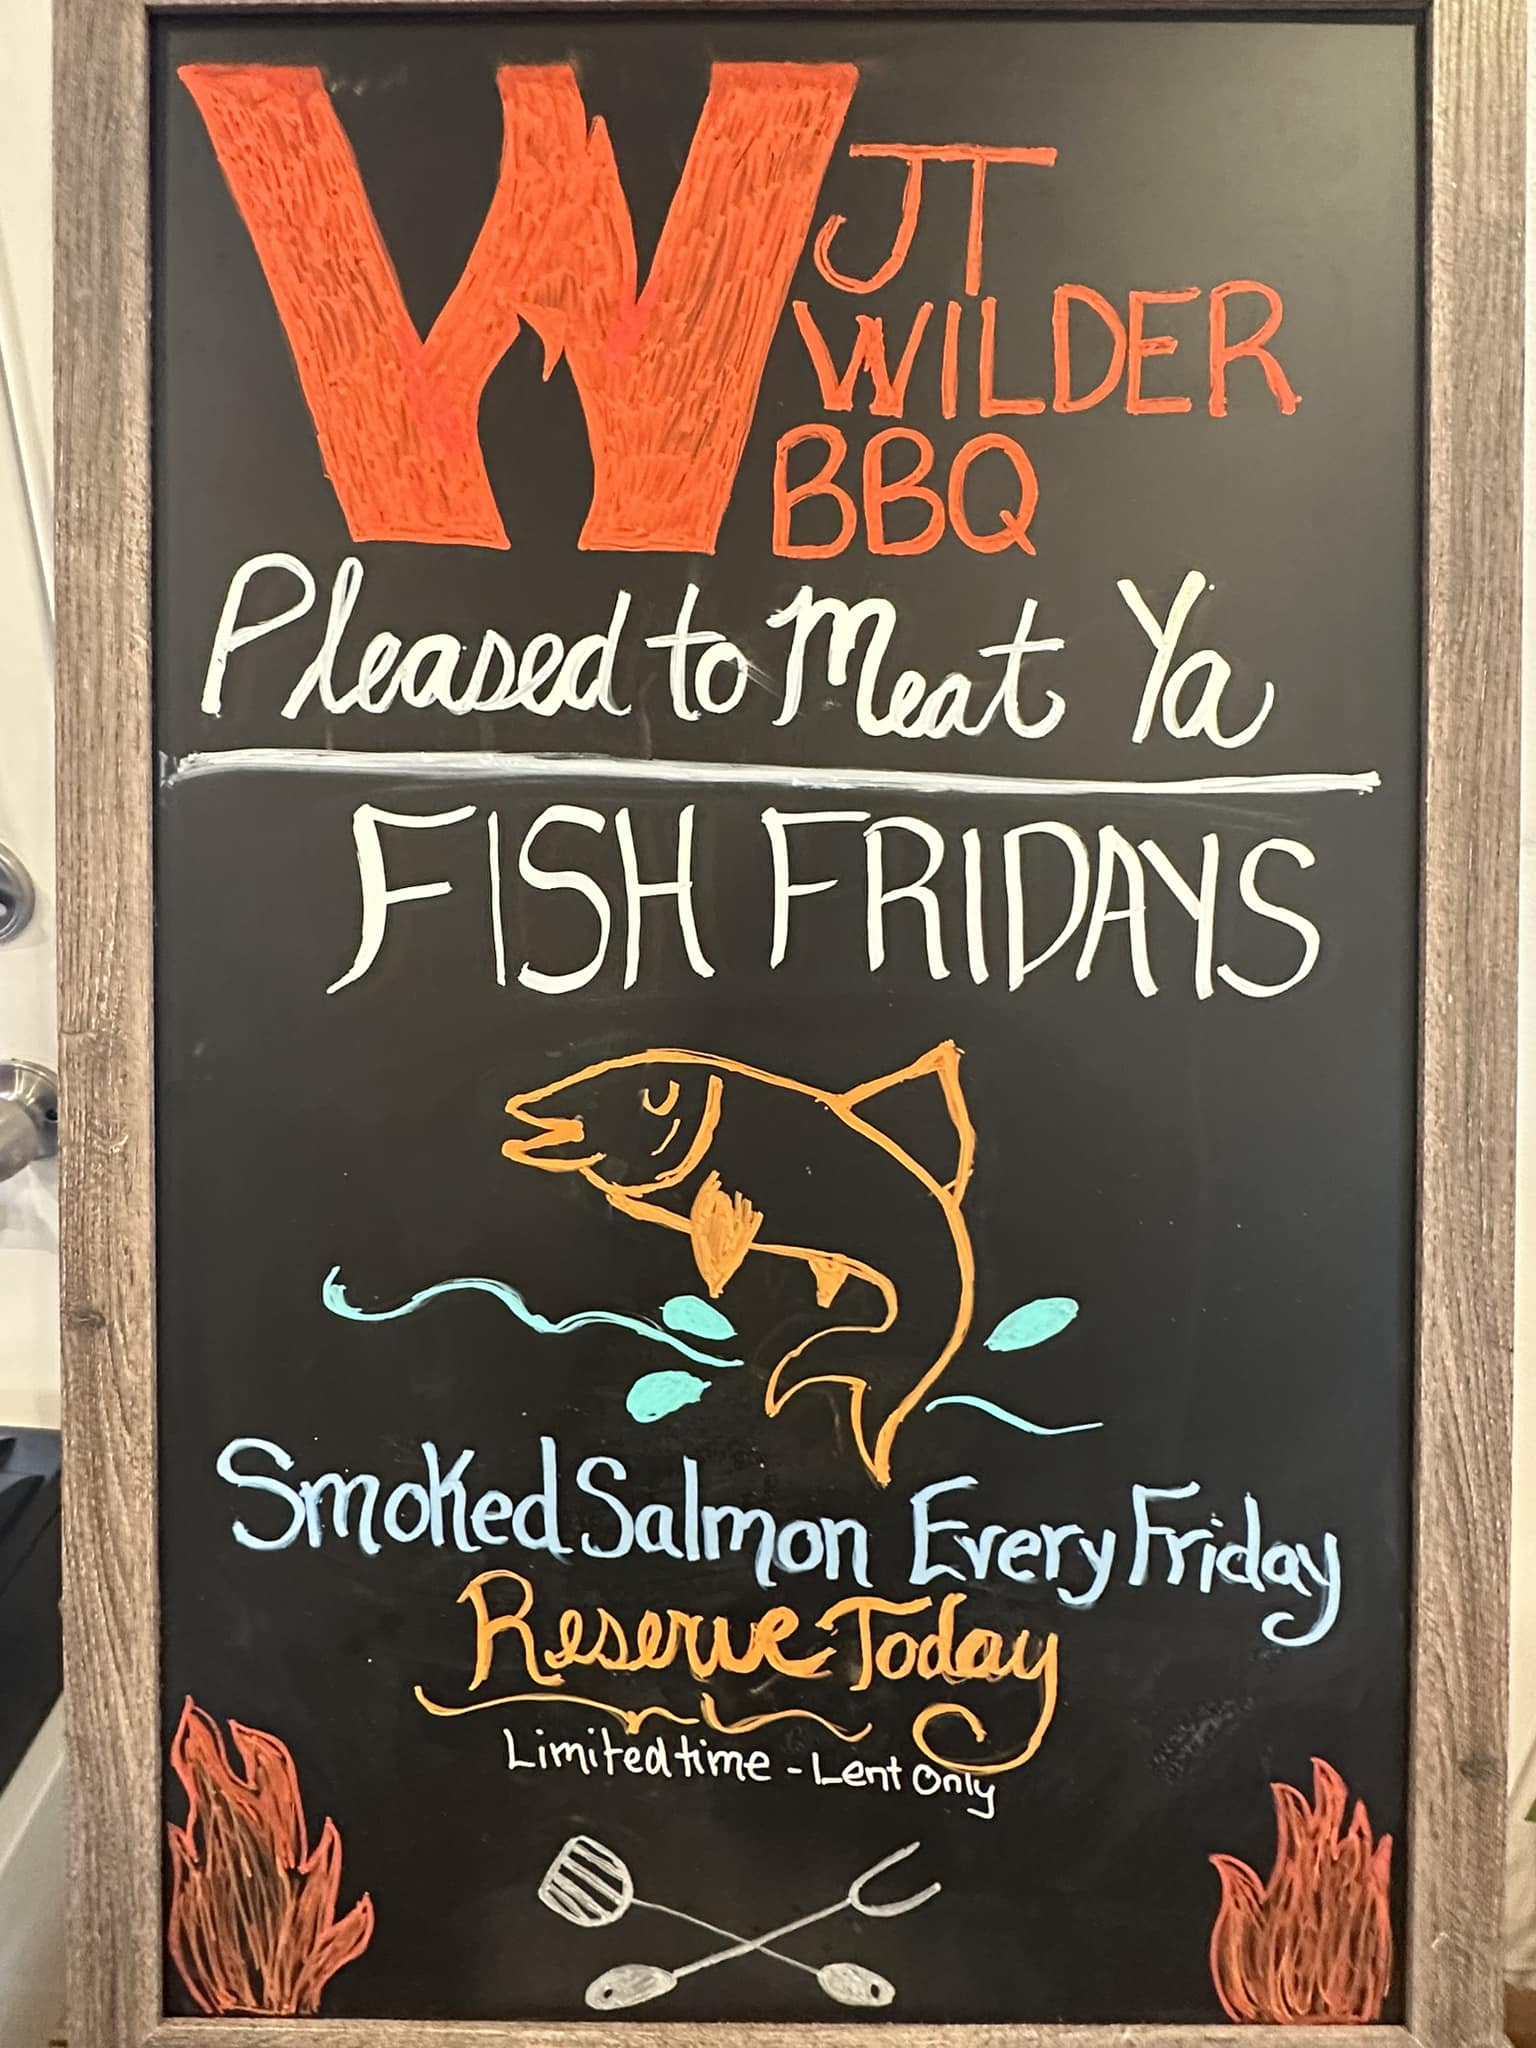 W
JT
WILDER
BBQ
Pleased to Meat Ya
FISH FRIDAYS
Smoked Salmon Every Friday
Reserve Today
Limited time - Lent Only